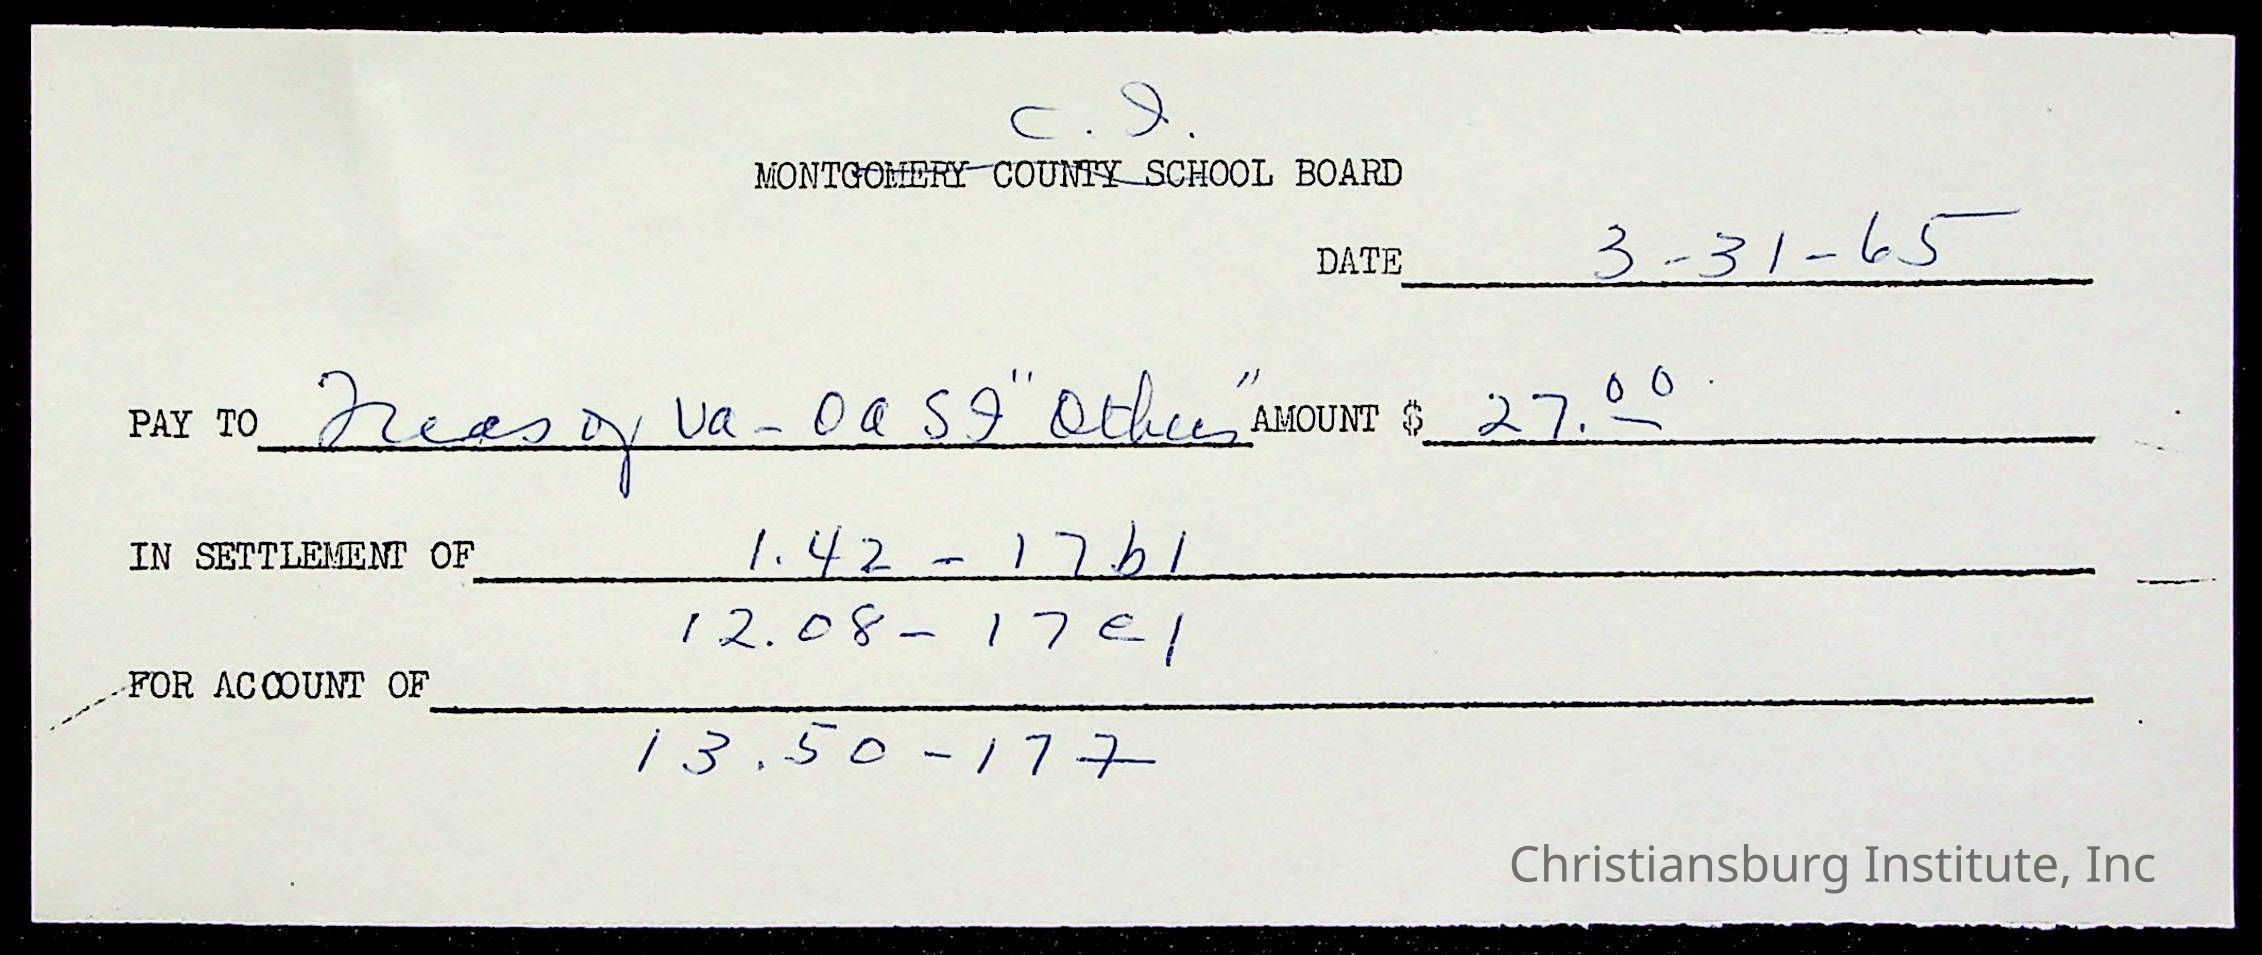 C. I.
MONTGOMERY COUNTY SCHOOL BOARD
DATE 3-31-65
PAY TO Treas of Va - OASI "Other" AMOUNT $ 27.00
IN SETTLEMENT OF 1.42 - 17b1
12.08 - 17c1
FOR ACCOUNT OF
13.50 - 177
Christiansburg Institute, Inc